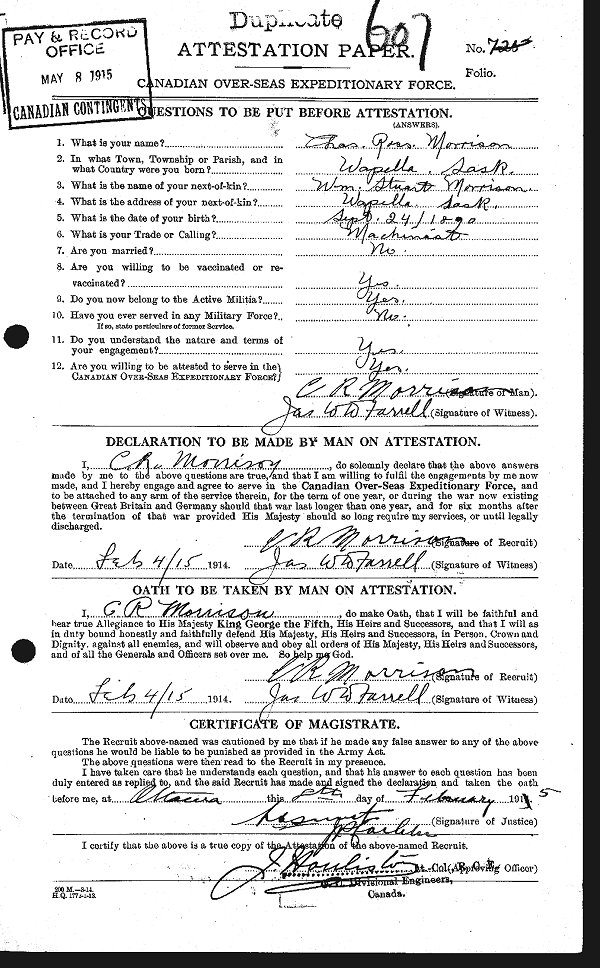 Duplicate
607
PAY & RECORD
OFFICE
MAY 8 1915
CANADIAN CONTINGENTS
ATTESTATION PAPER.
No. 725
Folio.
CANADIAN OVER-SEAS EXPEDITIONARY FORCE.
QUESTIONS TO BE PUT BEFORE ATTESTATION.
(ANSWERS).
1. What is your name? Chas. Ross. Morrison
2. In what Town, Township or Parish, and in
what Country were you born? Wapella. Sask.
3. What is the name of your next-of-kin? Wm. Stuart Morrison.
4. What is the address of your next-of-kin? Wapella Sask.
5. What is the date of your birth? Sept. 24/1890
6. What is your Trade or Calling? Machinist
7. Are you married? No.
8. Are you willing to be vaccinated or re-
vaccinated? Yes.
9. Do you now belong to the Active Militia? Yes.
10. Have you ever served in any Military Force? No.
If so, state particulars of former Service.
11. Do you understand the nature and terms of
your engagement? Yes.
12. Are you willing to be attested to serve in the Yes.
CANADIAN OVER-SEAS EXPEDITIONARY FORCE?
C R Morrison (Signature of Man).
Jas W D Farrell (Signature of Witness).
DECLARATION TO BE MADE BY MAN ON ATTESTATION.
I, C.R. Morrison, do solemnly declare that the above answers
made by me to the above questions are true, and that I am willing to fulfil the engagements by me now
made, and I hereby engage and agree to serve in the Canadian Over-Seas Expeditionary Force, and
to be attached to any arm of the service therein, for the term of one year, or during the war now existing
between Great Britain and Germany should that war last longer than one year, and for six months after
the termination of that war provided His Majesty should so long require my services, or until legally
discharged.
C R Morrison (Signature of Recruit)
Date Feb 4/15 1914. Jas W D Farrell (Signature of Witness)
OATH TO BE TAKEN BY MAN ON ATTESTATION.
I, C R Morrison, do make Oath, that I will be faithful and
bear true Allegiance to His Majesty King George the Fifth, His Heirs and Successors, and that I will as
in duty bound honestly and faithfully defend His Majesty, His Heirs and Successors, in Person, Crown and
Dignity, against all enemies, and will observe and obey all orders of His Majesty, His Heirs and Successors,
and of all the Generals and Officers set over me. So help me God.
C R Morrison (Signature of Recruit)
Date Feb 4/15 1914. Jas W D Farrell (Signature of Witness)
CERTIFICATE OF MAGISTRATE.
The Recruit above-named was cautioned by me that if he made any false answer to any of the above
questions he would be liable to be punished as provided in the Army Act.
The above questions were then read to the Recruit in my presence.
I have taken care that he understands each question, and that his answer to each question has been
duly entered as replied to, and the said Recruit has made and signed the declaration and taken the oath
before me, at Ottawa this day of February 1915
(Signature of Justice)
I certify that the above is a true copy of the Attestation of the above-named Recruit.
Lt.-Col. (Approving Officer)
Divisional Engineers,
Canada.
200 M.—8-14.
H.Q. 1772-1-13.